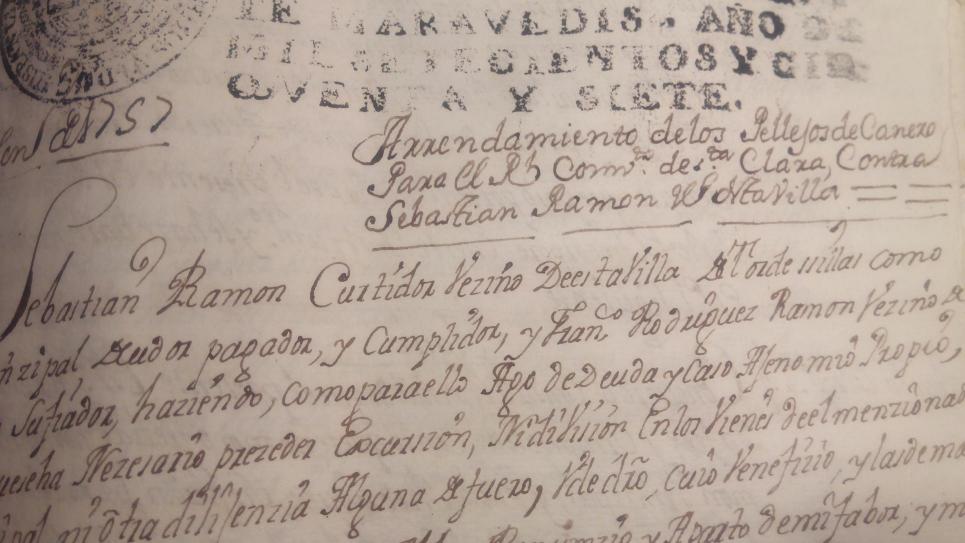 TE MARAVEDIS, AÑO DE
MIL SETECIENTOS Y CIN
QVENTA Y SIETE.
en 5 de 1757
Arrendamiento de los Pellejos de Canero
Para el Rl Convto de sta Clara, Contra
Sebastian Ramon Vº desta Villa
Sebastian Ramon Curtidor Vezino De esta Villa de Tordesillas como
nzipal deudor pagador, y Cumplidor, y Franco Rodriguez Ramon Vezino de
su fiador, haziendo, como para ello Ago de Deuda y Caso Ageno mio Propio,
Nezesario prezeder Excursion, Ni division En los Vienes de el menzionad
pal ni otra dilijenzia Alguna de fuero, V de dro, cuio Venefizio, y las dema
y Aparto de mi fabor, y m